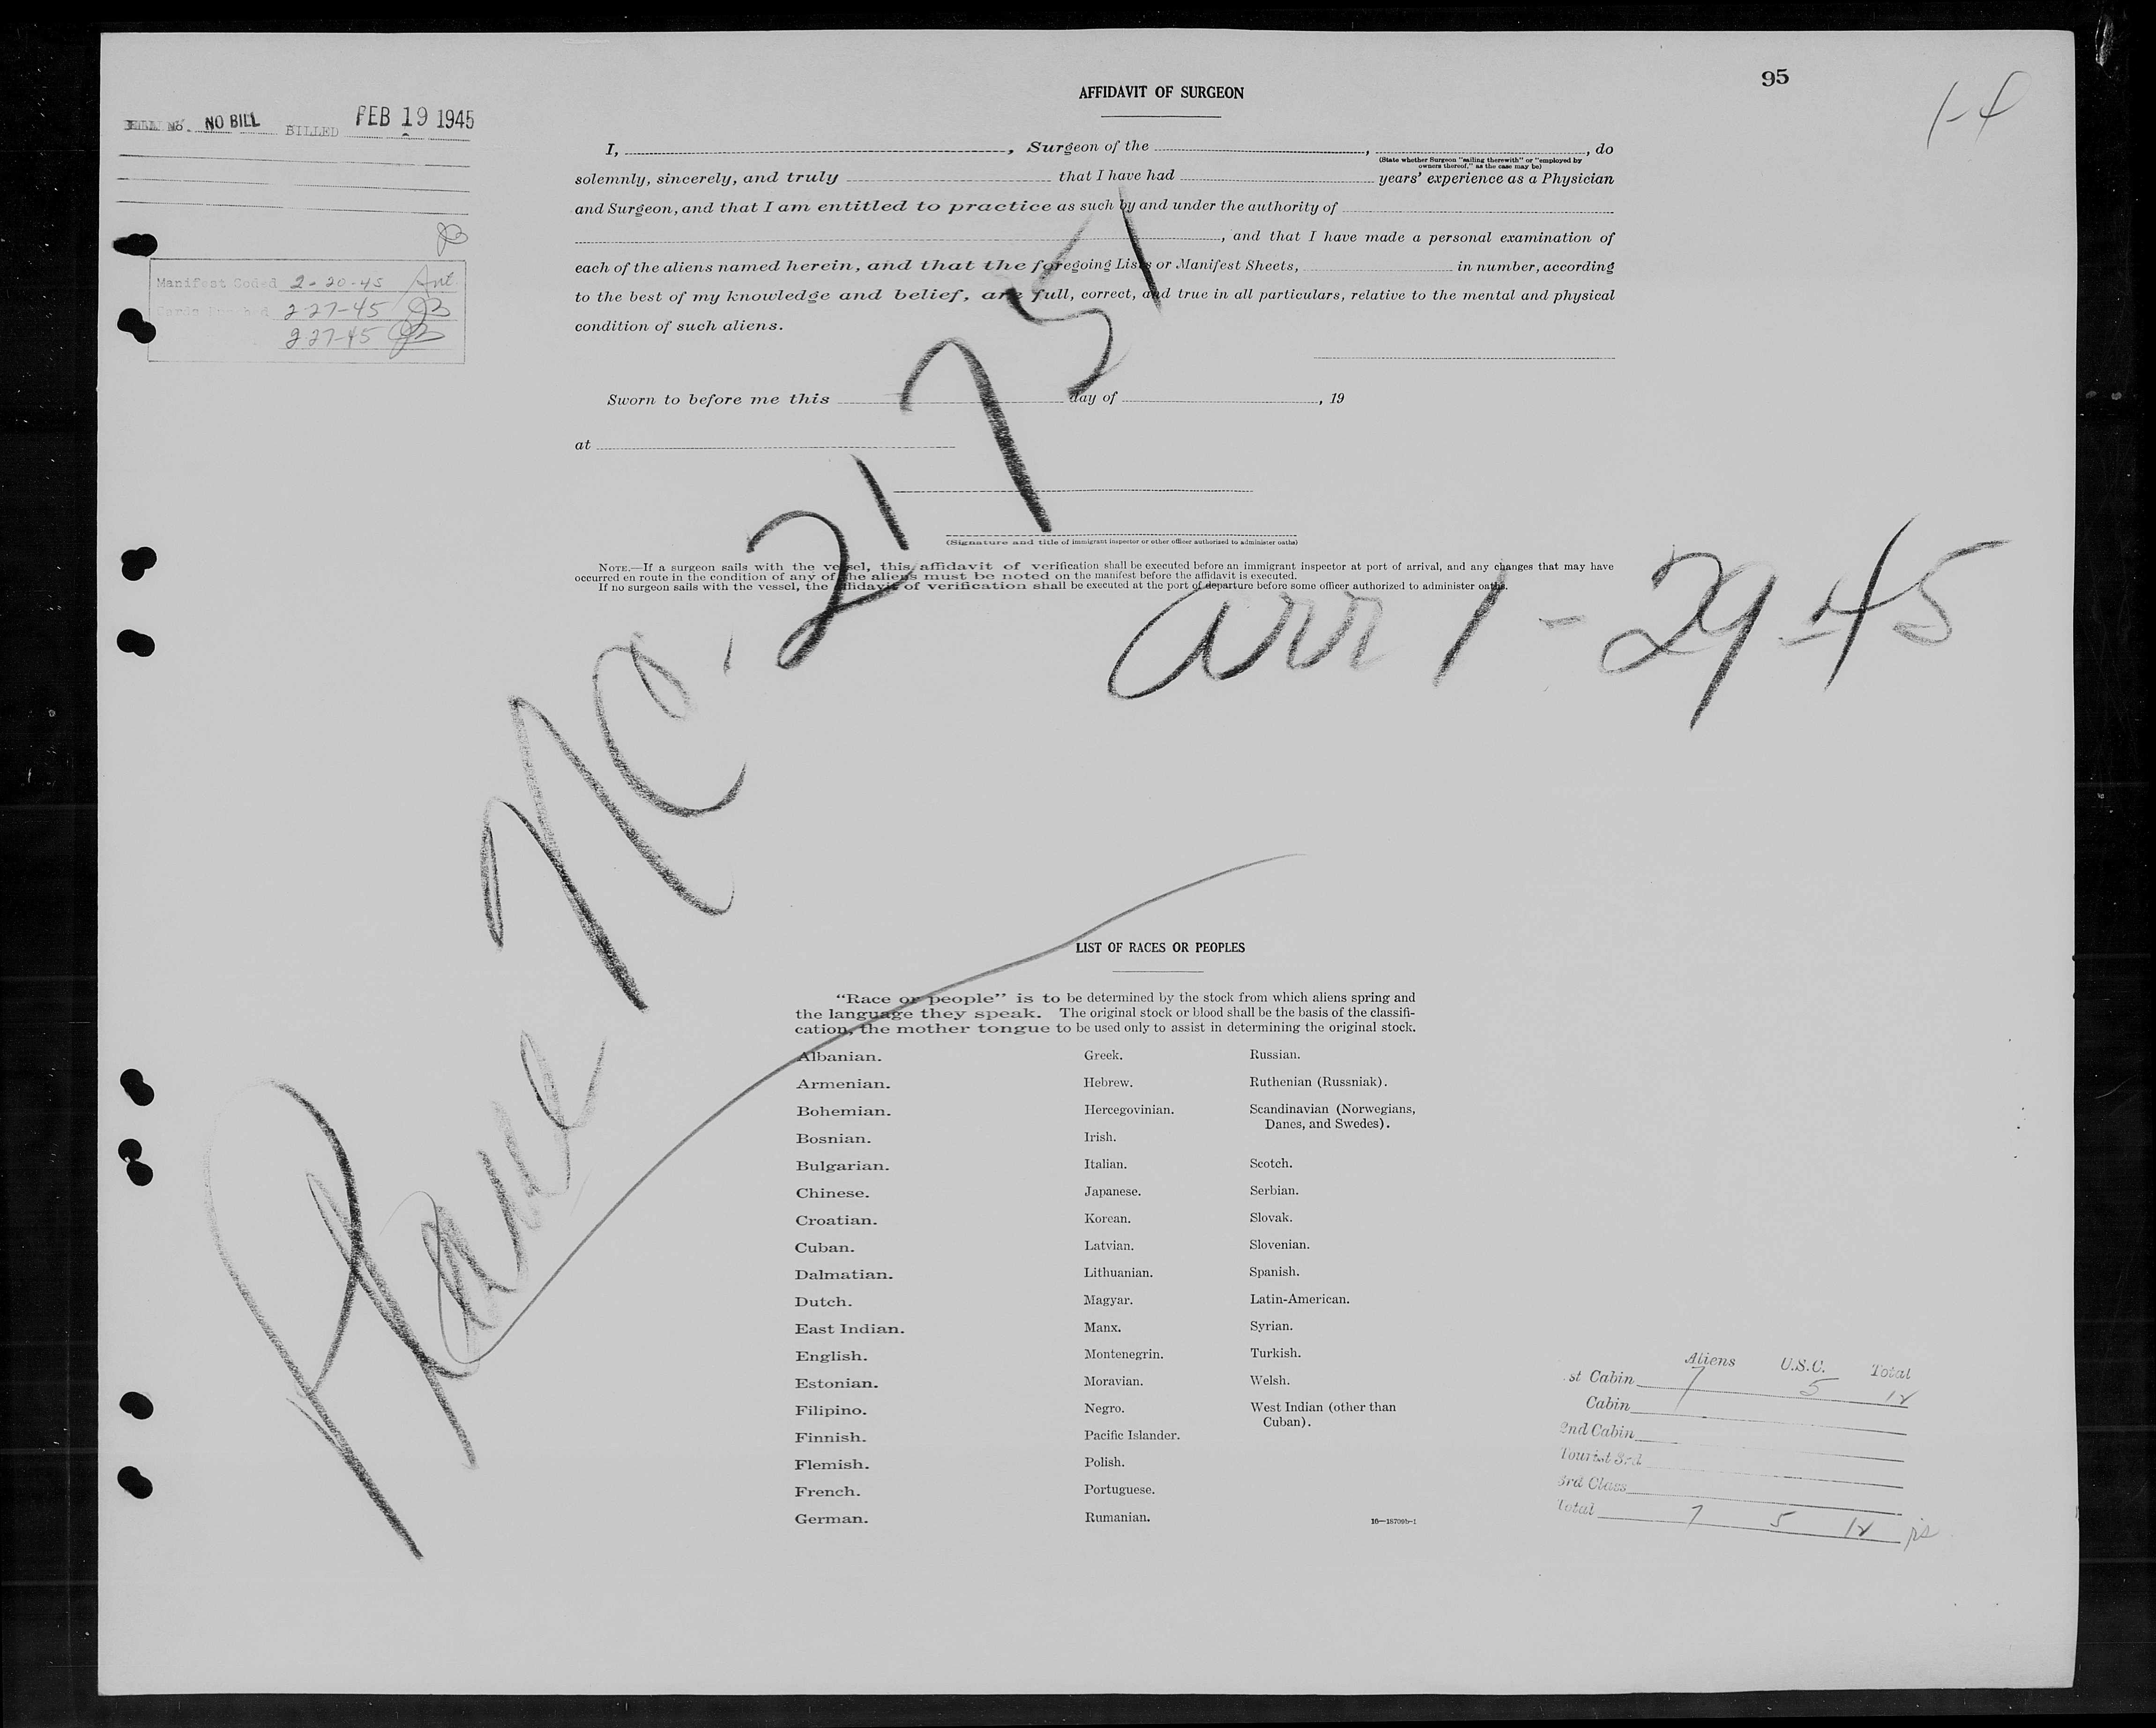 95
1-4
AFFIDAVIT OF SURGEON
BILL No. NO BILL BILLED FEB 19 1945
I, , Surgeon of the , , do
(State whether Surgeon "sailing therewith" or "employed by
owners thereof," as the case may be)
solemnly, sincerely, and truly that I have had years' experience as a Physician
and Surgeon, and that I am entitled to practice as such by and under the authority of
, and that I have made a personal examination of
each of the aliens named herein, and that the foregoing Lists or Manifest Sheets, in number, according
to the best of my knowledge and belief, are full, correct, and true in all particulars, relative to the mental and physical
condition of such aliens.
Manifest Coded 2-20-45
2-27-45
2 27-45
Sworn to before me this day of , 19
at
(Signature and title of immigrant inspector or other officer authorized to administer oaths)
NOTE.—If a surgeon sails with the vessel, this affidavit of verification shall be executed before an immigrant inspector at port of arrival, and any changes that may have
occurred en route in the condition of any of the aliens must be noted on the manifest before the affidavit is executed.
If no surgeon sails with the vessel, the affidavit of verification shall be executed at the port of departure before some officer authorized to administer oaths.
Plane NC. 21751
arr 1-29-45
LIST OF RACES OR PEOPLES
"Race or people" is to be determined by the stock from which aliens spring and
the language they speak. The original stock or blood shall be the basis of the classifi-
cation, the mother tongue to be used only to assist in determining the original stock.
Albanian.
Armenian.
Bohemian.
Bosnian.
Bulgarian.
Chinese.
Croatian.
Cuban.
Dalmatian.
Dutch.
East Indian.
English.
Estonian.
Filipino.
Finnish.
Flemish.
French.
German.
Greek.
Hebrew.
Hercegovinian.
Irish.
Italian.
Japanese.
Korean.
Latvian.
Lithuanian.
Magyar.
Manx.
Montenegrin.
Moravian.
Negro.
Pacific Islander.
Polish.
Portuguese.
Rumanian.
Russian.
Ruthenian (Russniak).
Scandinavian (Norwegians,
Danes, and Swedes).
Scotch.
Serbian.
Slovak.
Slovenian.
Spanish.
Latin-American.
Syrian.
Turkish.
Welsh.
West Indian (other than
Cuban).
16—18709b-1
Aliens U.S.C. Total
st Cabin 7 5 12
Cabin
2nd Cabin
Tourist 3rd
3rd Class
Total 7 5 12